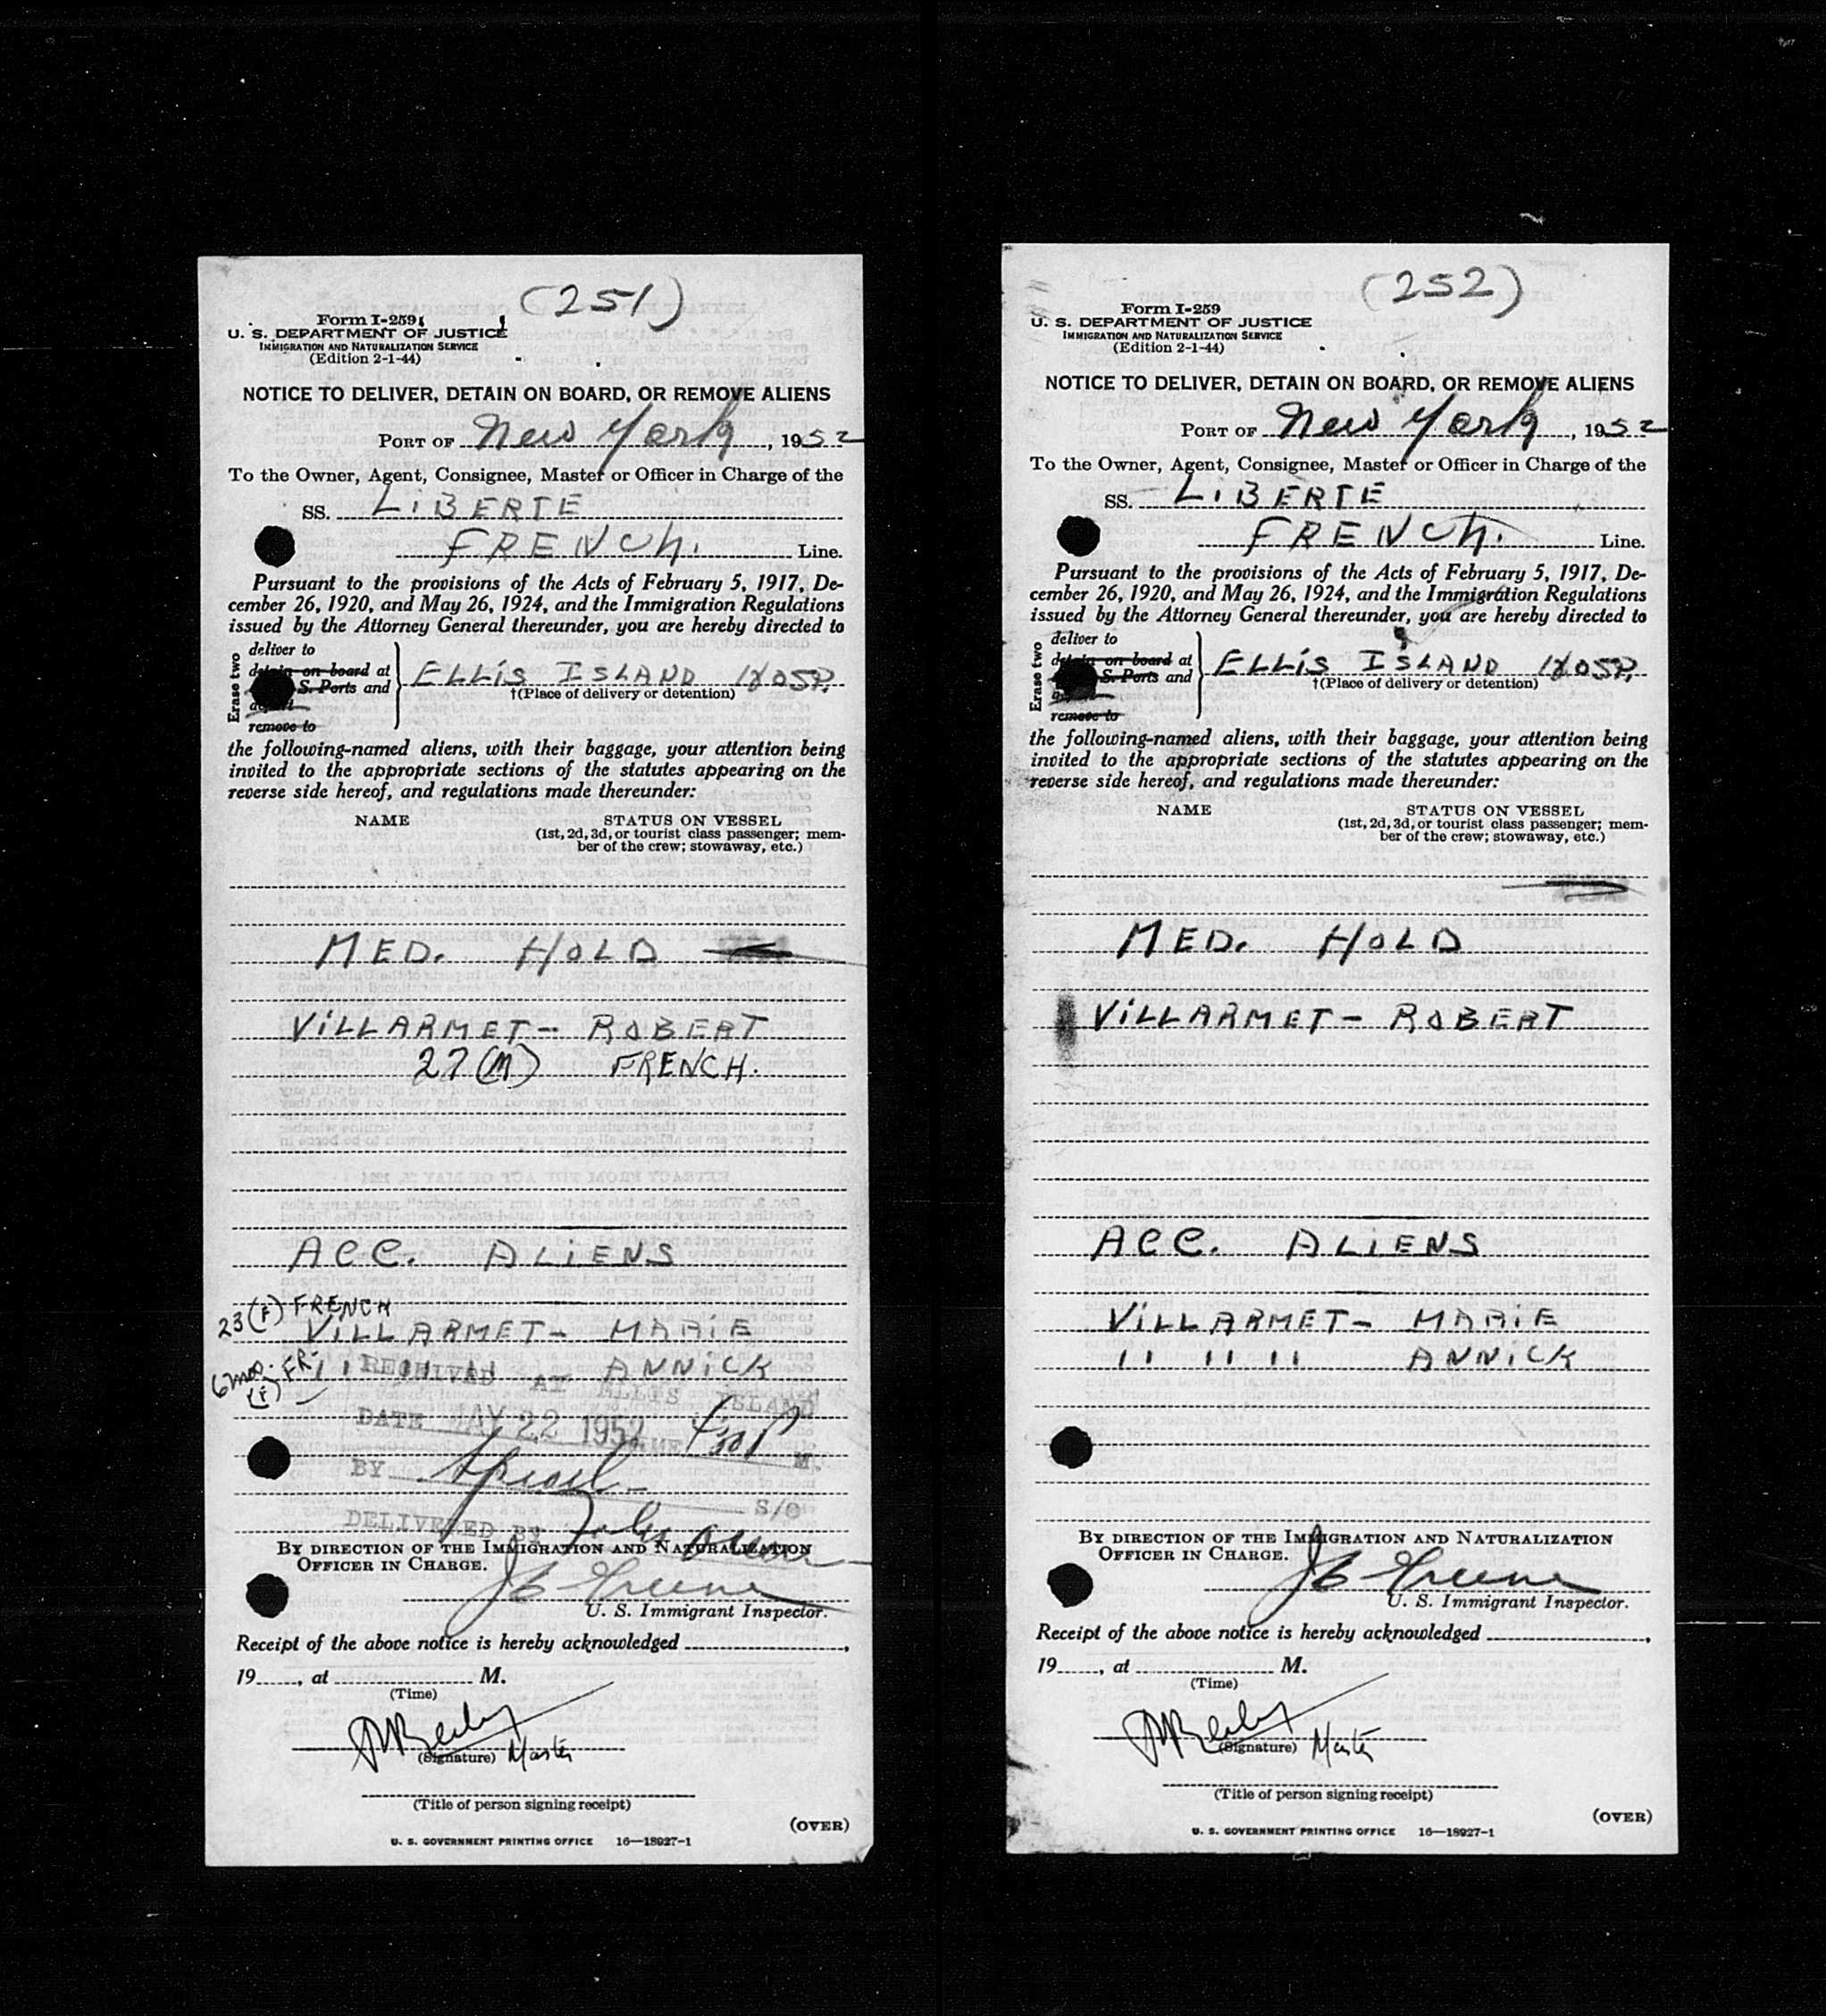 (251)
Form I-259
U. S. DEPARTMENT OF JUSTICE
IMMIGRATION AND NATURALIZATION SERVICE
(Edition 2-1-44)
NOTICE TO DELIVER, DETAIN ON BOARD, OR REMOVE ALIENS
PORT OF New York, 1952
To the Owner, Agent, Consignee, Master or Officer in Charge of the
SS. LiBERTE
FRENCH. Line.
Pursuant to the provisions of the Acts of February 5, 1917, De-
cember 26, 1920, and May 26, 1924, and the Immigration Regulations
issued by the Attorney General thereunder, you are hereby directed to
Erase two
deliver to
detain on board at
S. Ports and
remove to
ELLIS ISLAND HOSP.
†(Place of delivery or detention)
the following-named aliens, with their baggage, your attention being
invited to the appropriate sections of the statutes appearing on the
reverse side hereof, and regulations made thereunder:
NAME STATUS ON VESSEL
(1st, 2d, 3d, or tourist class passenger; mem-
ber of the crew; stowaway, etc.)
MED. HOLD
ViLLARMET- ROBERT
27 (M) FRENCH.
ACC. ALiENS
23 (F) FRENCH
ViLLARMET- MARiE
6 mos. (F) FR- 11 11 11 ANNiCK
RECEIVED AT ELLIS ISLAND
DATE MAY 22 1952 TIME 4:30 P M.
BY S/O
DELIVERED BY
BY DIRECTION OF THE IMMIGRATION AND NATURALIZATION
OFFICER IN CHARGE.
J E Greene
U. S. Immigrant Inspector.
Receipt of the above notice is hereby acknowledged ,
19 , at M.
(Time)
(Signature) Master
(Title of person signing receipt)
(OVER)
U. S. GOVERNMENT PRINTING OFFICE 16—18927-1
(252)
Form I-259
U. S. DEPARTMENT OF JUSTICE
IMMIGRATION AND NATURALIZATION SERVICE
(Edition 2-1-44)
NOTICE TO DELIVER, DETAIN ON BOARD, OR REMOVE ALIENS
PORT OF New York, 1952
To the Owner, Agent, Consignee, Master or Officer in Charge of the
SS. LiBERTE
FRENCH. Line.
Pursuant to the provisions of the Acts of February 5, 1917, De-
cember 26, 1920, and May 26, 1924, and the Immigration Regulations
issued by the Attorney General thereunder, you are hereby directed to
Erase two
deliver to
detain on board at
S. Ports and
remove to
ELLIS ISLAND HOSP.
†(Place of delivery or detention)
the following-named aliens, with their baggage, your attention being
invited to the appropriate sections of the statutes appearing on the
reverse side hereof, and regulations made thereunder:
NAME STATUS ON VESSEL
(1st, 2d, 3d, or tourist class passenger; mem-
ber of the crew; stowaway, etc.)
MED. HOLD
ViLLARMET- ROBERT
ACC. ALiENS
ViLLARMET- MARiE
11 11 11 ANNiCK
BY DIRECTION OF THE IMMIGRATION AND NATURALIZATION
OFFICER IN CHARGE.
J E Greene
U. S. Immigrant Inspector.
Receipt of the above notice is hereby acknowledged ,
19 , at M.
(Time)
(Signature) Master
(Title of person signing receipt)
(OVER)
U. S. GOVERNMENT PRINTING OFFICE 16—18927-1